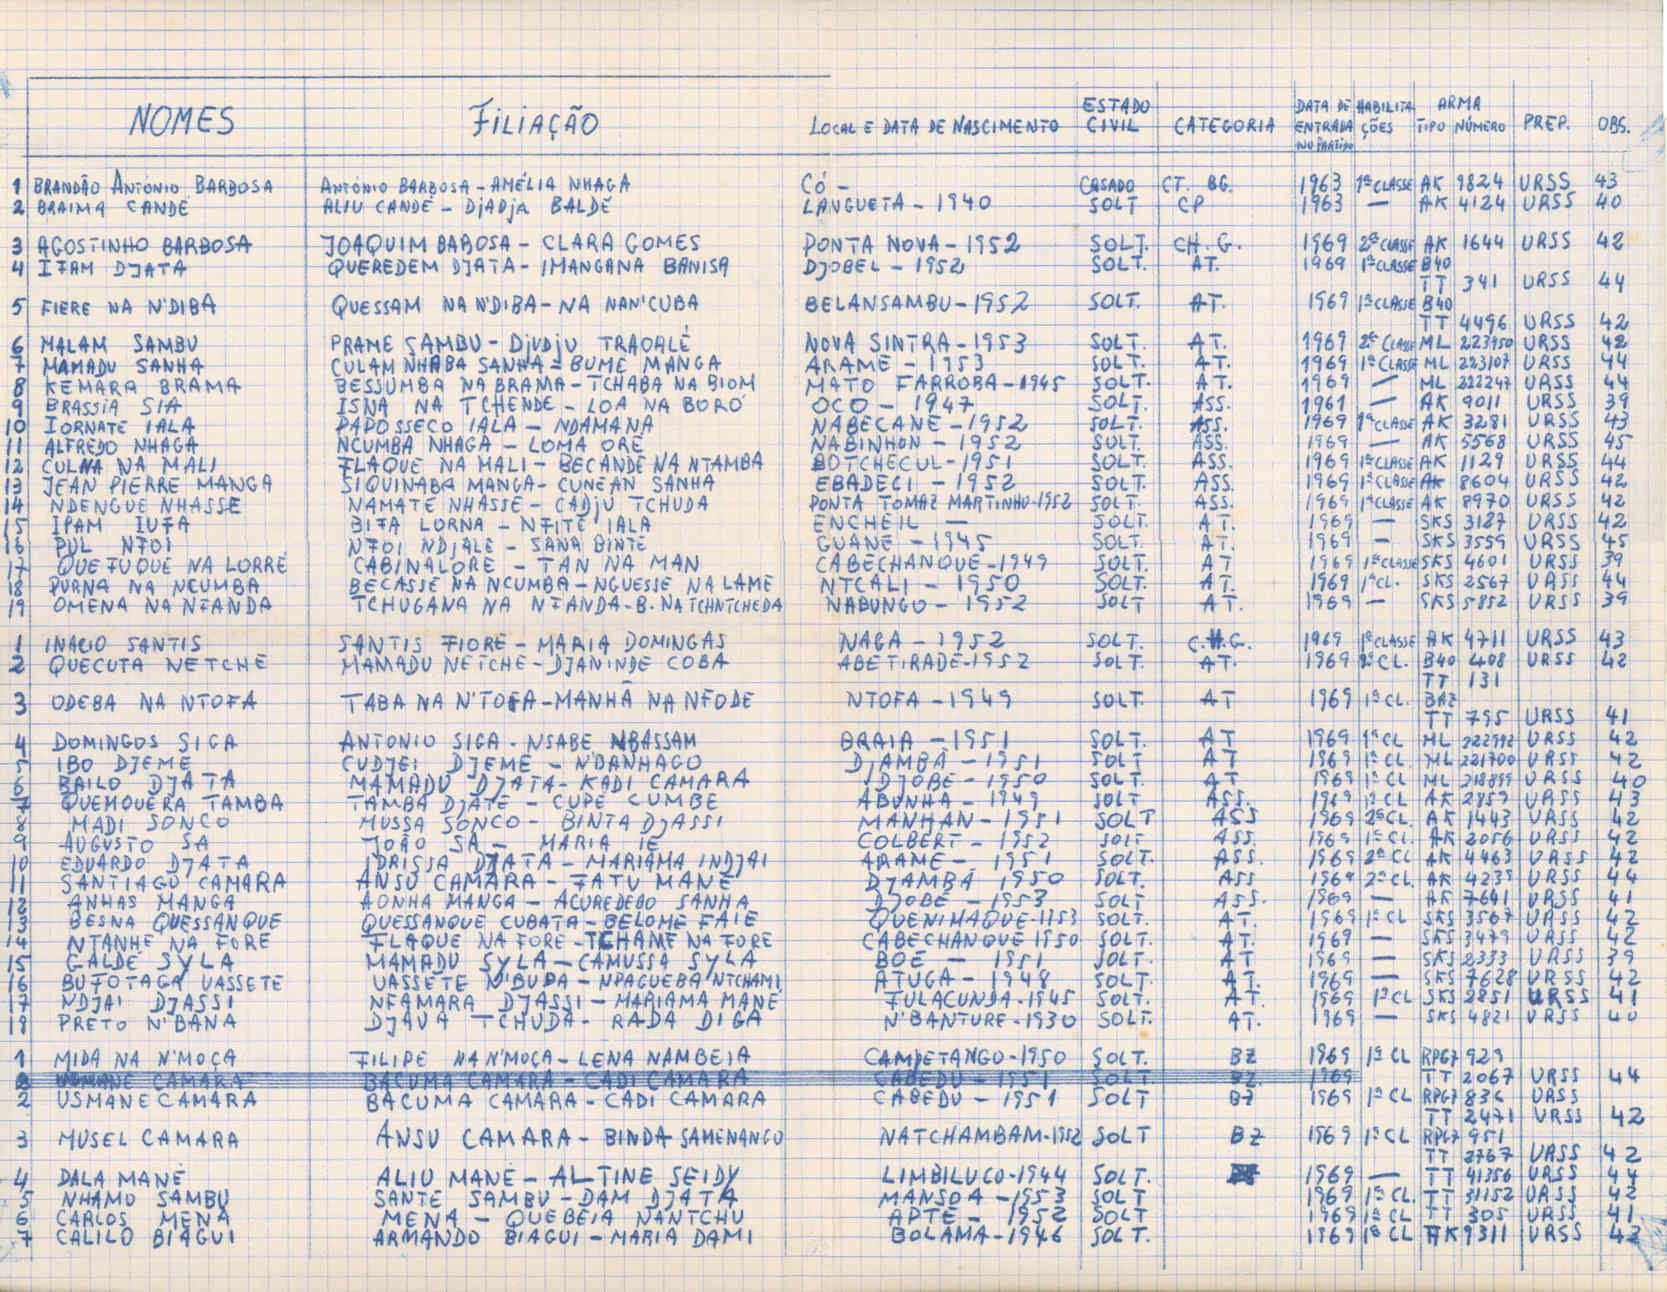 NOMES FILIAÇÃO LOCAL E DATA DE NASCIMENTO ESTADO CIVIL CATEGORIA DATA DE ENTRADA NO PARTIDO HABILITAÇÕES ARMA TIPO NÚMERO PREP. OBS.
1 BRANDÃO ANTÓNIO BARBOSA ANTÓNIO BARBOSA - AMÉLIA NHAGA CÓ - CASADO CT. BG. 1963 1ª CLASSE AK 9824 URSS 43
2 BRAIMA CANDÉ ALIU CANDÉ - DJADJA BALDÉ LANGUETA - 1940 SOLT CP 1963 — AK 4124 URSS 40
3 AGOSTINHO BARBOSA JOAQUIM BABOSA - CLARA GOMES PONTA NOVA - 1952 SOLT. CH. G. 1969 2ª CLASSE AK 1644 URSS 42
4 IFAM DJATA QUEREDEM DJATA - IMANGANA BANISA DJOBEL - 1952 SOLT. AT. 1969 1ª CLASSE B40
TT 341 URSS 44
5 FIERE NA N'DIBA QUESSAM NA N'DIBA - NA NAN'CUBA BELANSAMBU - 1952 SOLT. AT. 1969 1ª CLASSE B40
TT 4496 URSS 42
6 MALAM SAMBU PRAME SAMBU - DJUDJU TRAORLÉ NOVA SINTRA - 1953 SOLT. AT. 1969 2ª CLASSE ML 223950 URSS 42
7 MAMADU SANHA CULAM NHABA SANHA - BUME MANGA ARAME - 1953 SOLT. AT. 1969 1ª CLASSE ML 223107 URSS 44
8 KEMARA BRAMA BESSUMBA NA BRAMA - TCHABA NA BIOM MATO FARROBA - 1945 SOLT. AT. 1969 — ML 222247 URSS 44
9 BRASSIA SIA ISNA NA TCHENDE - LOA NA BORÓ OCO - 1947 SOLT. ASS. 1961 — AK 9011 URSS 39
10 IORNATE IALA PADOSSECO IALA - NDAMANA NABECANE - 1952 SOLT. ASS. 1969 1ª CLASSE AK 3281 URSS 43
11 ALFREDO NHAGA NCUMBA NHAGA - LOMA ORE NABINHON - 1952 SOLT. ASS. 1969 — AK 5568 URSS 45
12 CULNA NA MALI FLAQUE NA MALI - BECANDE NA NTAMBA BOTCHECUL - 1951 SOLT. ASS. 1969 1ª CLASSE AK 1129 URSS 44
13 JEAN PIERRE MANGA SIQUINABA MANGA - CUNEAN SANHA EBADECI - 1952 SOLT. ASS. 1969 1ª CLASSE AK 8604 URSS 42
14 NDENGUE NHASSE NAMATE NHASSE - CADJU TCHUDA PONTA TOMAZ MARTINHO - 1952 SOLT. ASS. 1969 1ª CLASSE AK 8970 URSS 42
15 IPAM IUFA BIFA LORNA - NFITE IALA ENCHEIL — SOLT. AT. 1969 — SKS 3127 URSS 42
16 PUL NFOI NFOI NDJALE - SANA BINTE GUANE - 1945 SOLT. AT. 1969 — SKS 3559 URSS 45
17 QUEFUQUE NA LORRÉ CABINALORE - TAN NA MAN CABECHANQUE - 1949 SOLT. AT 1969 1ª CLASSE SKS 4601 URSS 39
18 PURNA NA NCUMBA BECASSE NA NCUMBA - NGUESSE NA LAME NTCALI - 1950 SOLT. AT. 1969 1ª CL. SKS 2567 URSS 44
19 OMENA NA NFANDA TCHUGANA NA NFANDA - B. NA TCHNTCHEDA NABUNGO - 1952 SOLT AT. 1969 — SKS 5852 URSS 39
1 INACIO SANTIS SANTIS FIORE - MARIA DOMINGAS NAGA - 1952 SOLT. C.H.G. 1969 1ª CLASSE AK 4711 URSS 43
2 QUECUTA NETCHE MAMADU NETCHE - DJANINDE COBA ABETIRADE - 1952 SOLT. AT. 1969 CL. B40 408 URSS 42
TT 131
3 ODEBA NA NTOFA TABA NA N'TOFA - MANHÃ NA NFODE NTOFA - 1949 SOLT. AT 1969 1ª CL. BAZ
TT 795 URSS 41
4 DOMINGOS SIGA ANTONIO SIGA - NSABE NBASSAM BRAIA - 1951 SOLT. AT 1969 1ª CL ML 222992 URSS 42
5 IBO DJEME CUDJEI DJEME - N'DANHAGO DJAMBÁ - 1951 SOLT AT 1969 1ª CL. ML 221700 URSS 42
6 BAILO DJATA MAMADU DJATA - KADI CAMARA DJOBE - 1950 SOLT. AT 1969 1ª CL ML 218899 URSS 40
7 QUEMOUERA TAMBA TAMBA DJATE - CUPE CUMBE ABUNHA - 1949 SOLT ASS. 1969 1ª CL AK 2859 URSS 43
8 MADI SONCO MUSSA SONCO - BINTA DJASSI MANHAN - 1951 SOLT ASS 1969 2ª CL. AK 1443 URSS 42
9 AUGUSTO SA JOÃO SA - MARIA IE COLBERT - 1952 SOLT ASS. 1969 1ª CL. AK 2056 URSS 42
10 EDUARDO DJATA IDRISSA DJATA - MARIAMA INDJAI ARAME - 1951 SOLT. ASS. 1969 2ª CL AK 4463 URSS 42
11 SANTIAGO CAMARA ANSU CAMARA - FATU MANE DJAMBÁ 1950 SOLT. ASS 1969 2ª CL. AK 4235 URSS 44
12 ANHAS MANGA AONHA MANGA - ACUREDEDO SANHA DJOBE - 1953 SOLT ASS. 1969 — AK 7641 URSS 41
13 BESNA QUESSANQUE QUESSANQUE CUBATA - BELOME FAIE QUENIMAQUE - 1953 SOLT. AT. 1969 1ª CL SKS 3567 URSS 42
14 NTANHE NA FORE FLAQUE NA FORE - TCHAME NA FORE CABECHANQUE 1950 SOLT. AT. 1969 — SKS 3479 URSS 42
15 GALDÉ SYLA MAMADU SYLA - CAMUSSA SYLA BOE — 1951 SOLT. AT 1969 — SKS 2333 URSS 39
16 BUFOTAGA UASSETE UASSETE N'BUDA - NPAGUEBA NTCHAMI ATUGA - 1948 SOLT. AT. 1969 — SKS 7628 URSS 42
17 NDJAI DJASSI NFAMARA DJASSI - MARIAMA MANE FULACUNDA - 1945 SOLT. AT. 1969 1ª CL SKS 2851 URSS 41
18 PRETO N'BANA DJAVA TCHUDA - RADA DIGA N'BANTURE - 1930 SOLT. AT. 1969 — SKS 4821 URSS 40
1 MIDA NA N'MOÇA FILIPE NA N'MOÇA - LENA NAMBEIA CAMPETANGO - 1950 SOLT. BZ 1969 1ª CL RPG7 929
CAMARA BACUMA CAMARA - CADI CAMARA CABEDU - 1951 SOLT BZ 1969 TT 2067 URSS 44
2 USMANE CAMARA BACUMA CAMARA - CADI CAMARA CABEDU - 1951 SOLT BZ 1969 1ª CL RPG7 836 URSS
TT 2471 URSS 42
3 MUSEL CAMARA ANSU CAMARA - BINDA SAMENANGO NATCHAMBAM - 1952 SOLT BZ 1969 1ª CL RPG7 951
TT 2767 URSS 42
4 DALA MANÉ ALIU MANE - AL-TINE SEIDY LIMBILUCO - 1944 SOLT. 1969 — TT 41356 URSS 44
5 NHAMO SAMBU SANTE SAMBU - DAM DJATA MANSOA - 1953 SOLT 1969 1ª CL. TT 31152 URSS 42
6 CARLOS MENA MENA - QUEBEIA NANTCHU APTE - 1952 SOLT 1969 1ª CL TT 305 URSS 41
7 CALILO BIAGUI ARMANDO BIAGUI - MARIA DAMI BOLAMA - 1946 SOLT. 1969 1ª CL AK 9311 URSS 43